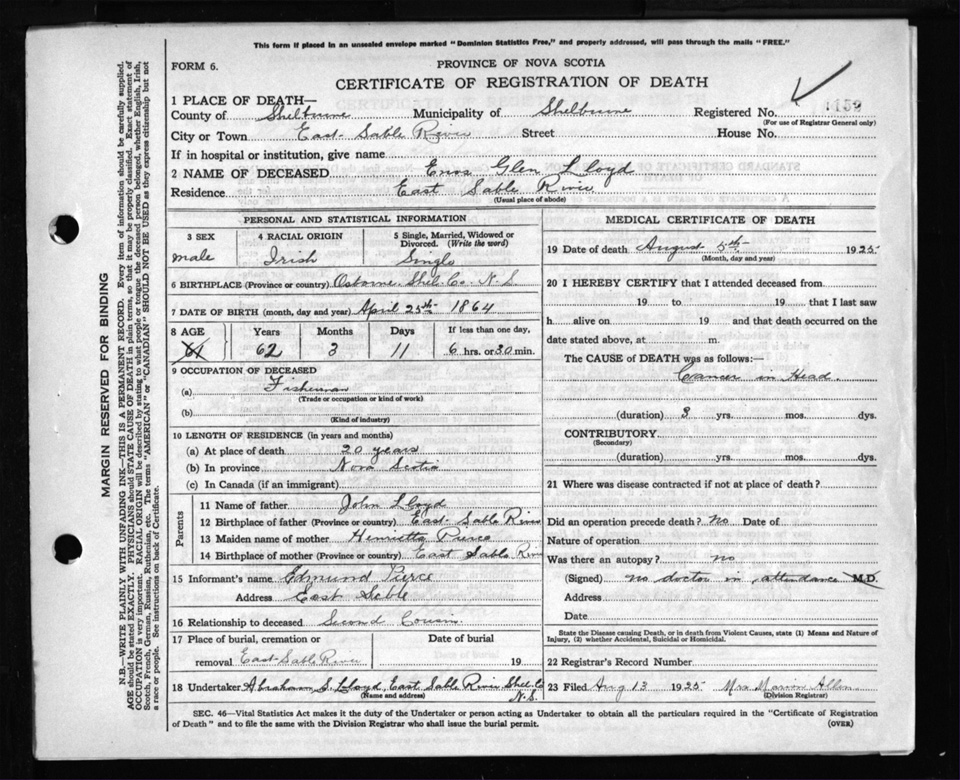 This form if placed in an unsealed envelope marked "Dominion Statistics Free," and properly addressed, will pass through the mails "FREE."
FORM 6.
PROVINCE OF NOVA SCOTIA
CERTIFICATE OF REGISTRATION OF DEATH
1 PLACE OF DEATH—
County of Shelburne Municipality of Shelburne Registered No. 1159
(For use of Registrar General only)
City or Town East Sable River Street House No.
If in hospital or institution, give name
2 NAME OF DECEASED Enos Glen Lloyd
Residence East Sable River
(Usual place of abode)
PERSONAL AND STATISTICAL INFORMATION
3 SEX
male
4 RACIAL ORIGIN
Irish
5 Single, Married, Widowed or Divorced. (Write the word)
Single
6 BIRTHPLACE (Province or country) Osborne Shel. Co. N.S
7 DATE OF BIRTH (month, day and year) April 25th 1864
8 AGE Years Months Days If less than one day,
61 62 3 11 6 hrs. or 30 min.
9 OCCUPATION OF DECEASED
(a) Fisherman
(Trade or occupation or kind of work)
(b)
(Kind of industry)
10 LENGTH OF RESIDENCE (in years and months)
(a) At place of death 20 years
(b) In province Nova Scotia
(c) In Canada (if an immigrant)
Parents
11 Name of father John Lloyd
12 Birthplace of father (Province or country) East Sable River
13 Maiden name of mother Henrietta Pierce
14 Birthplace of mother (Province or country) East Sable River
15 Informant's name Edmund Pierce
Address East Sable
16 Relationship to deceased Second Cousin
17 Place of burial, cremation or removal East Sable River
Date of burial
19
18 Undertaker Abraham S. Lloyd East Sable River Shel. Co
N.S.
(Name and address)
MEDICAL CERTIFICATE OF DEATH
19 Date of death August 5th 1925
(Month, day and year)
20 I HEREBY CERTIFY that I attended deceased from
19 to 19 that I last saw
h alive on 19 and that death occurred on the
date stated above, at m.
The CAUSE OF DEATH was as follows:—
Cancer in Head.
(duration) 3 yrs. mos. dys.
CONTRIBUTORY
(Secondary)
(duration) yrs. mos. dys.
21 Where was disease contracted if not at place of death?
Did an operation precede death? No Date of
Nature of operation
Was there an autopsy? no
(Signed) no doctor in attendance M.D.
Address
Date
State the Disease causing Death, or in death from Violent Causes, state (1) Means and Nature of
Injury, (2) whether Accidental, Suicidal or Homicidal.
22 Registrar's Record Number
23 Filed Aug 13 1925 Mrs Marion Allen
(Division Registrar)
SEC. 46—Vital Statistics Act makes it the duty of the Undertaker or person acting as Undertaker to obtain all the particulars required in the "Certificate of Registration
of Death" and to file the same with the Division Registrar who shall issue the burial permit.
(OVER)
MARGIN RESERVED FOR BINDING
N.B.—WRITE PLAINLY WITH UNFADING INK—THIS IS A PERMANENT RECORD. Every item of information should be carefully supplied.
AGE should be stated EXACTLY. PHYSICIANS should STATE CAUSE OF DEATH in plain terms, so that it may be properly classified. Exact statement of
OCCUPATION is very important. RACIAL ORIGIN will be described by stating to what people or tongue the deceased person belonged, whether English, Irish,
Scotch, French, German, Russian, Ruthenian, etc. The terms "AMERICAN" or "CANADIAN" SHOULD NOT BE USED as they express citizenship but not
a race or people. See instructions on back of Certificate.